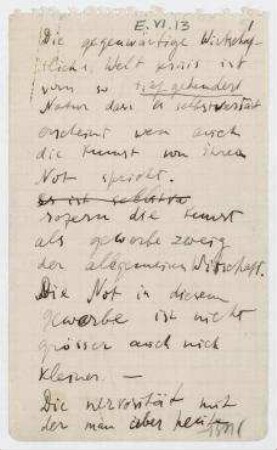 E.VI.13
Die gegenwärtige Wirtschaf-
tliche Welt krisis ist
von so tief gehendert
Natur dass es selbstverständ
erscheint wen auch
die Kunst von ihren
Not spricht.
es ist selbstv
sofern die Kunst
als gewerbe zweig
der allgemeinen Wirtschaft.
Die Not in diesem
gewerbe ist nicht
grösser auch nich
kleiner. —
Die nervosität mit
der man über heut